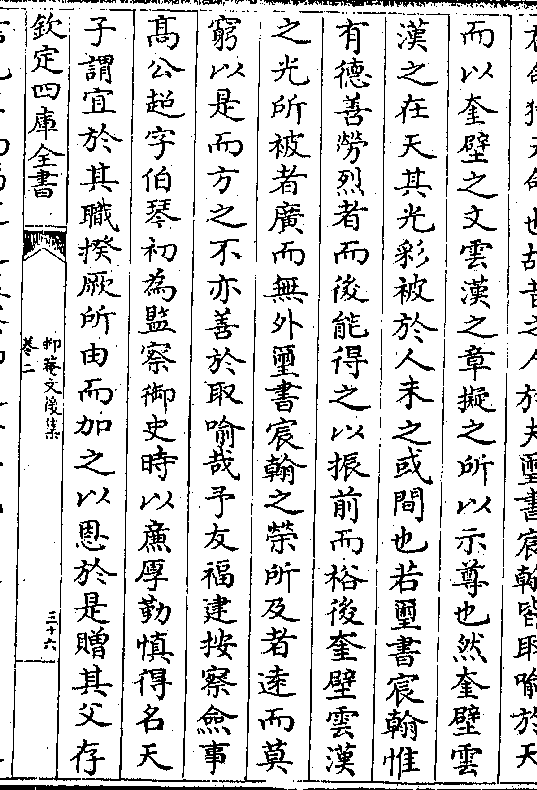 猶天命也故昔之人於夫璽書宸翰皆取喻於天
而以奎壁之文雲漢之章擬之所以示尊也然奎壁雲
漢之在天其光彩被於人未之或間也若璽書宸翰惟
有德善勞烈者而後能得之以振前而裕後奎壁雲漢
之光所被者廣而無外璽書宸翰之榮所及者遠而莫
窮以是而方之不亦善於取喻哉予友福建按察僉事
髙公超字伯琴初為監察御史時以廉厚勤慎得名天
子謂宜於其職揆厥所由而加之以恩於是贈其父存
欽定四庫全書
抑菴文後集
卷二
三十六